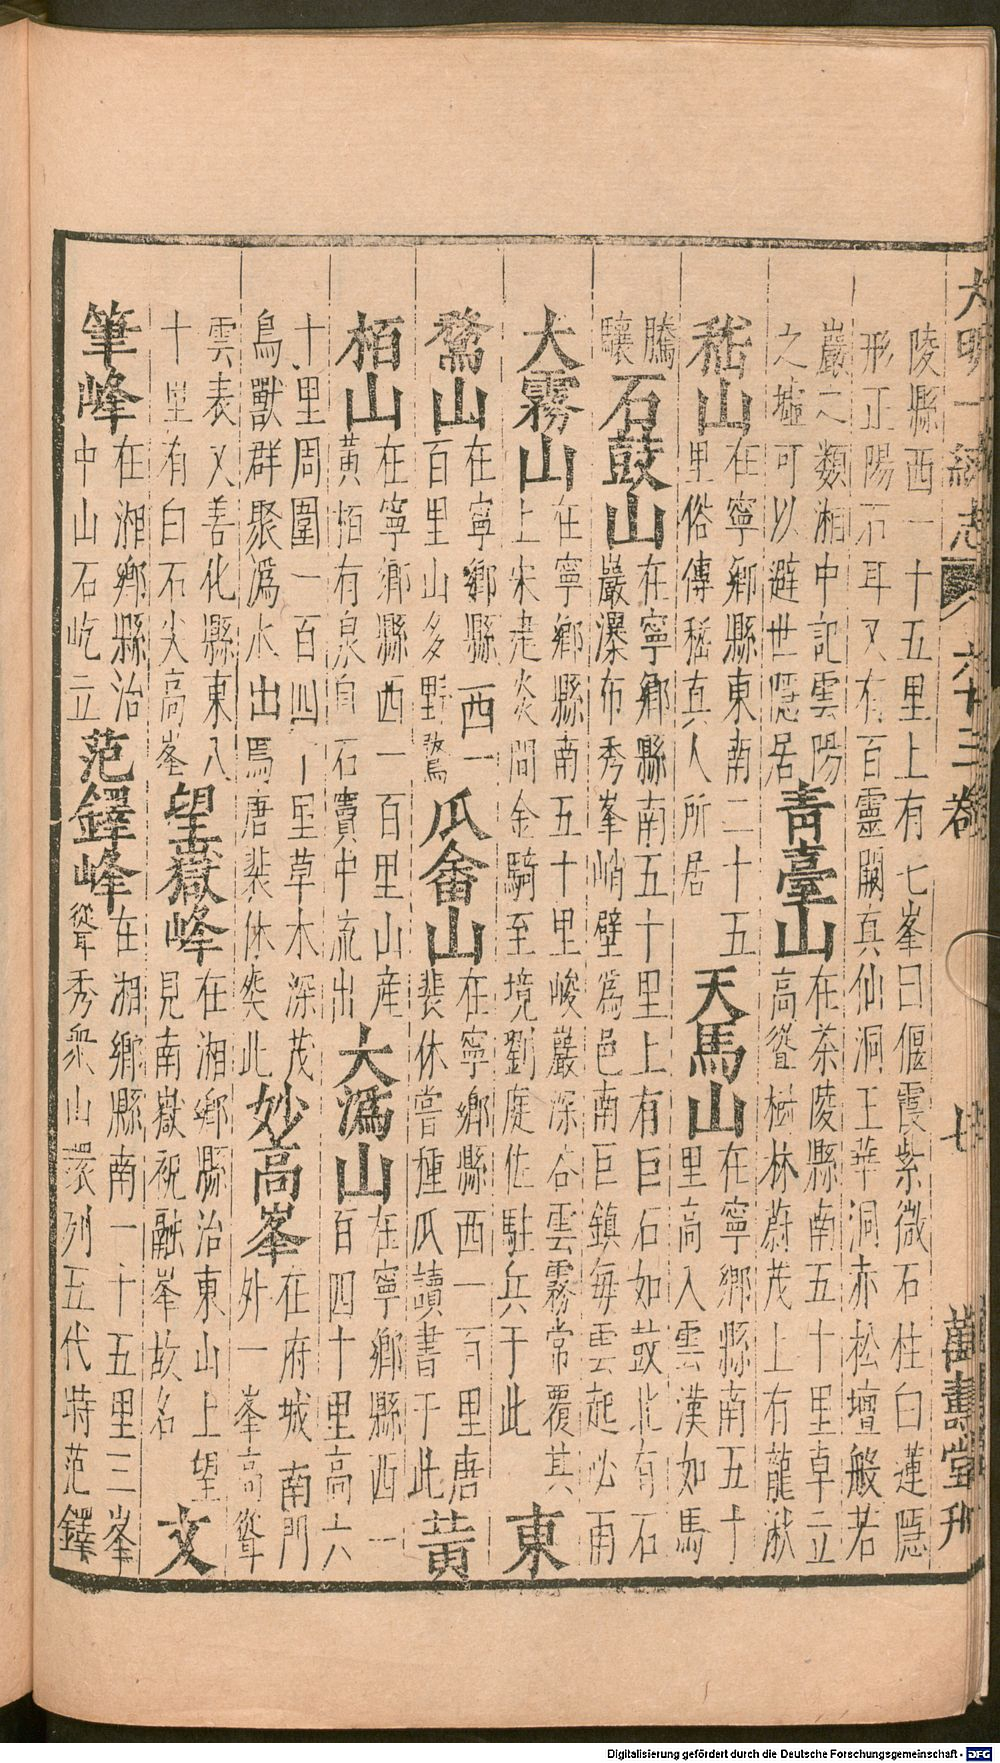 大明一統志 六十三卷 七 萬壽堂刊
陵縣西一十五里上有七峯曰偃霞紫微石柱白蓮隱
形正陽石耳又有百靈闕真仙洞王華洞赤松壇般若
巖之類湘中記雲陽
之墟可以避世隱居
青臺山
在茶陵縣南五十里卓立
高聳樹林蔚茂上有龍湫
嵇山
在寧鄉縣東南二十五
里俗傳嵇真人所居
天馬山
在寧鄉縣南五十
里高入雲漢如馬
騰
驤
石鼓山
在寧鄉縣南五十里上有巨石如鼓北有石
巖瀑布秀峯峭壁為邑南巨鎮每雲起必雨
大霧山
在寧鄉縣南五十里峻巖深谷雲霧常覆其
上宋建炎間金騎至境劉庭佐駐兵于此
東
鶩山
在寧鄉縣西一
百里山多野鶩
瓜畬山
在寧鄉縣西一百里唐
裴休嘗種瓜讀書于此
黃
栢山
在寧鄉縣西一百里山產
黃栢有泉自石竇中流出
大溈山
在寧鄉縣西一
百四十里高六
十里周圍一百四十里草木深茂
鳥獸群聚溈水出焉唐裴休葬此
妙高峯
在府城南門
外一峯高聳
雲表又善化縣東八
十里有白石尖高峯
望嶽峰
在湘鄉縣治東山上望
見南嶽祝融峯故名
文
筆峰
在湘鄉縣治
中山石屹立
范鐸峰
在湘鄉縣南一十五里三峯
聳秀衆山環列五代時范鐸
Digitalisierung gefördert durch die Deutsche Forschungsgemeinschaft - DFG